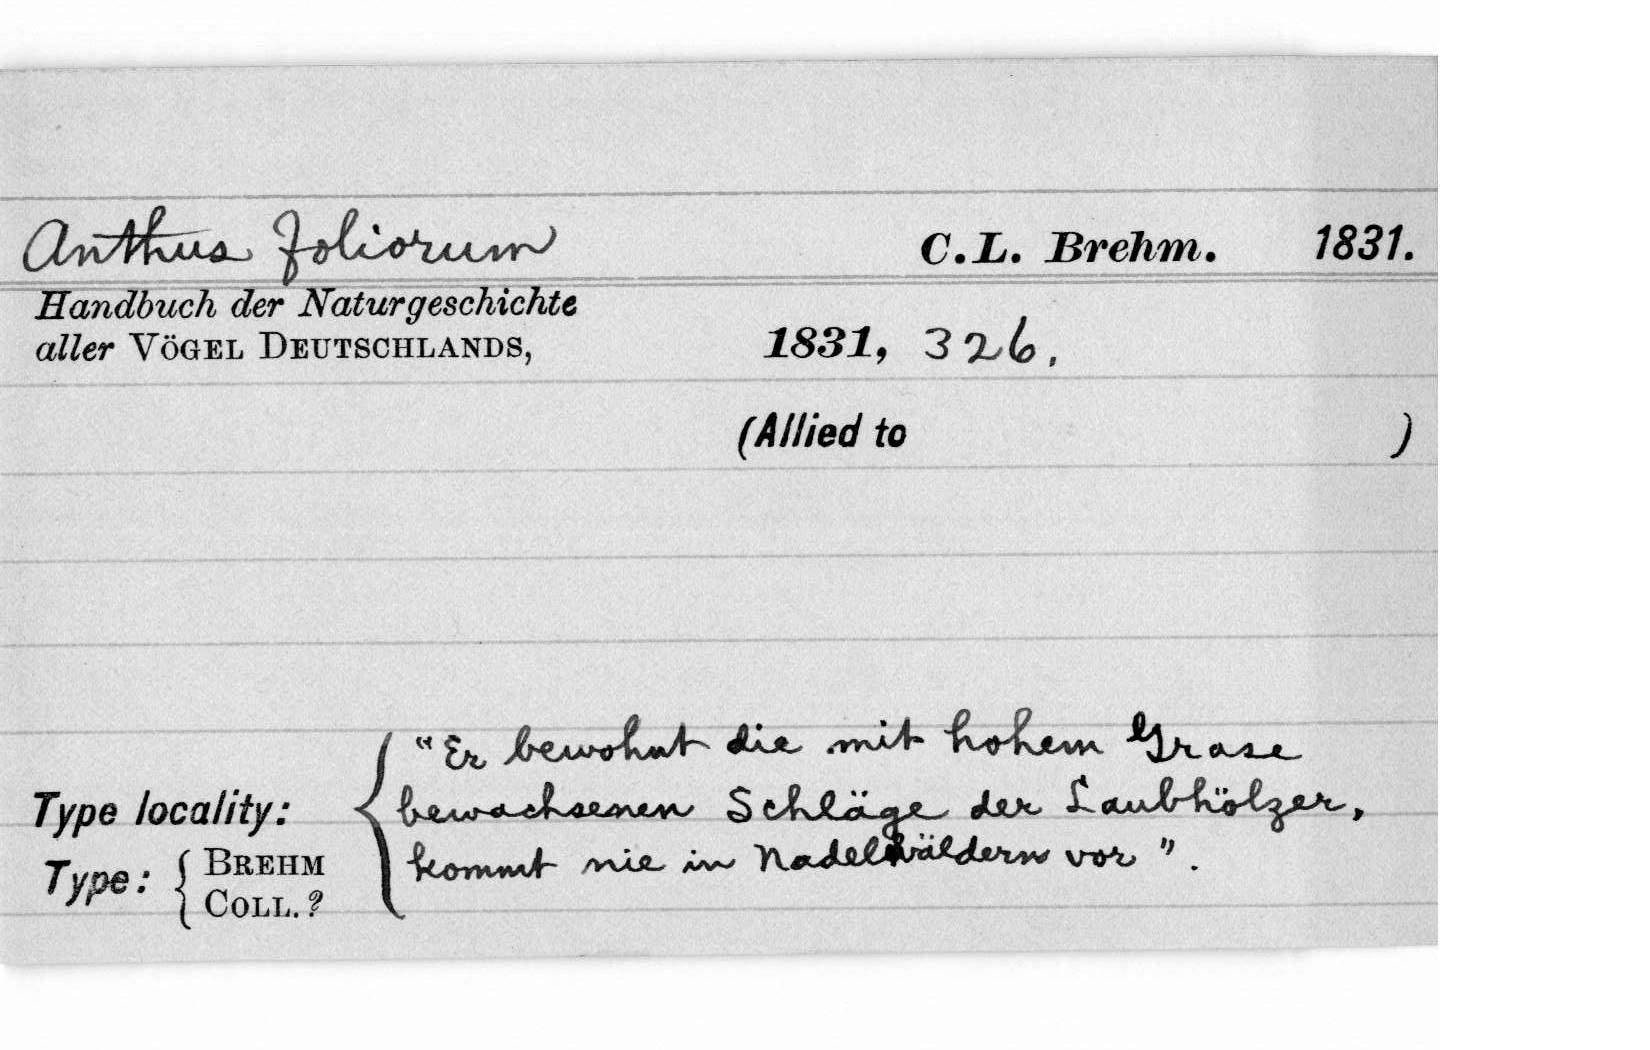 Anthus foliorum C.L. Brehm. 1831.
Handbuch der Naturgeschichte
aller VÖGEL DEUTSCHLANDS, 1831, 326.
(Allied to )
"Er bewohnt die mit hohem Grase
Type locality: bewachsenen Schläge der Laubhölzer,
kommt nie in Nadelwäldern vor".
Type: BREHM
COLL.?